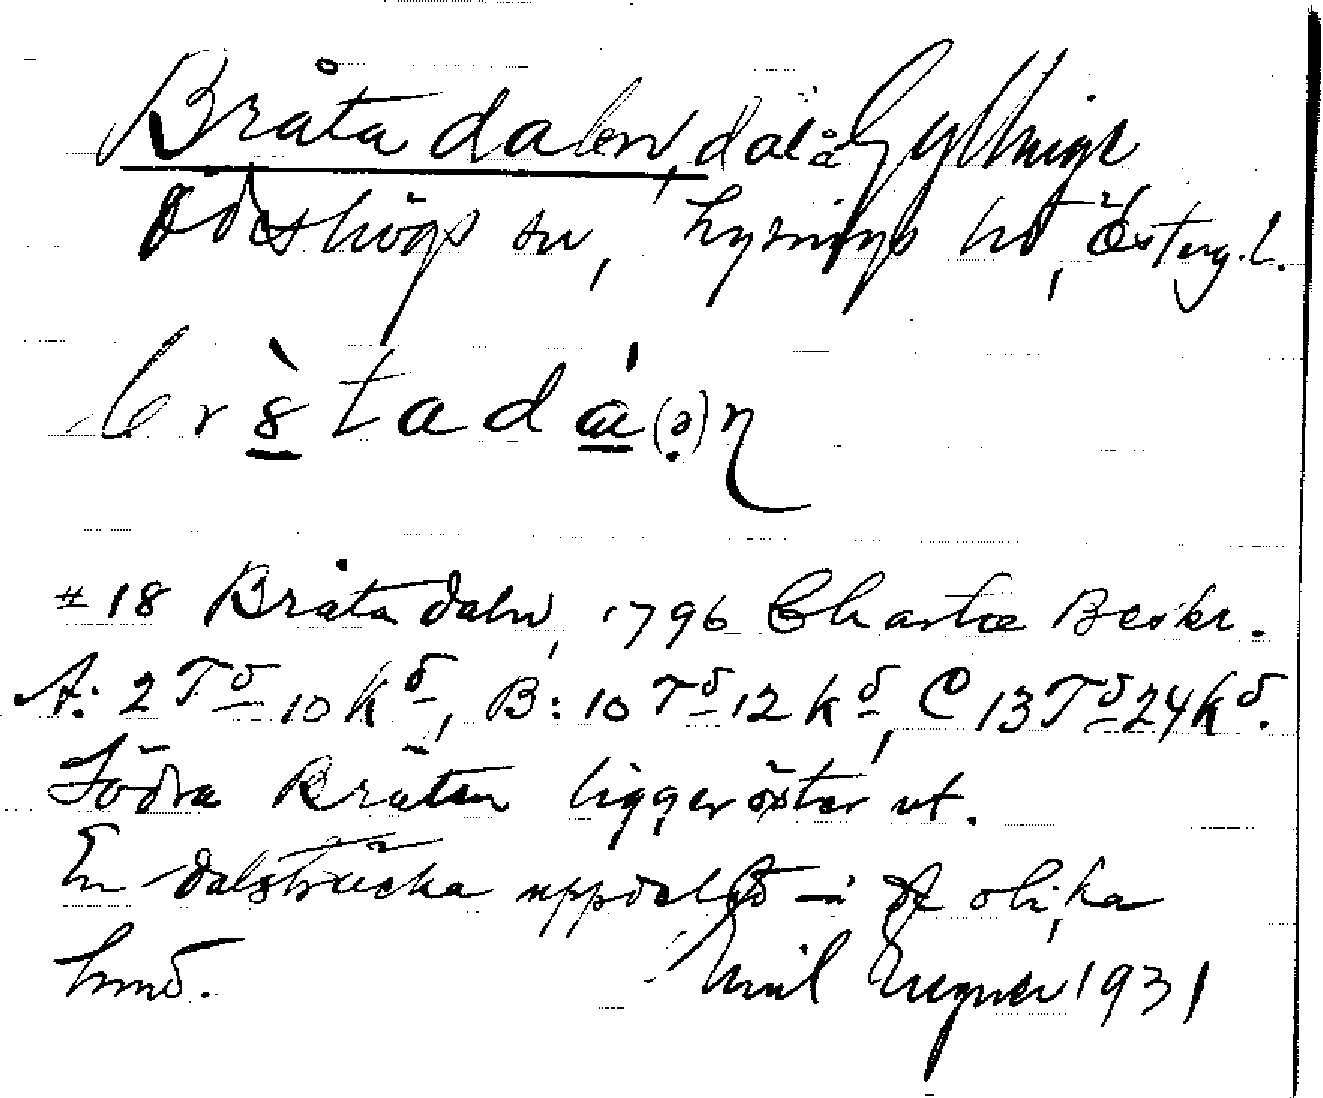 Bråtadalen, dal å Gyllinge
Ödeshögs sn, Lysings hd, Österg. l.
br8̀tadá(ə)n
# 18 Bråtadaln, 1796 Charta Beskr.
A: 2 Td 10 kd, B: 10 Td 12 kd, C 13 Td 24 kd.
Södra Bråten ligger öster ut.
En dalsträcka uppdeld i olika
hmd. Emil 1931